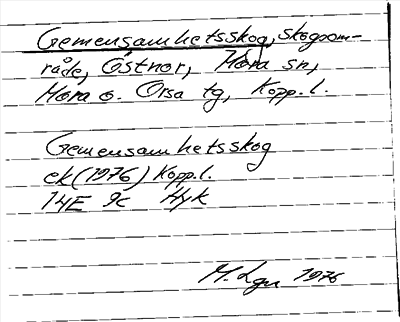 Gemensamhetsskog, skogsom-
råde, Östnor, Mora sn,
Mora o. Orsa tg, Kopp. l.
Gemensamhetsskog
ek (1976) Kopp. l.
14E 9c Hyk
M. Lgn 1976